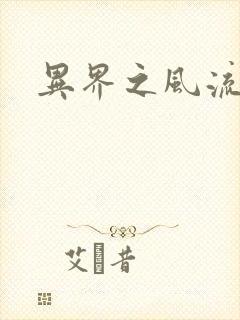 異界之風流
艾 昔